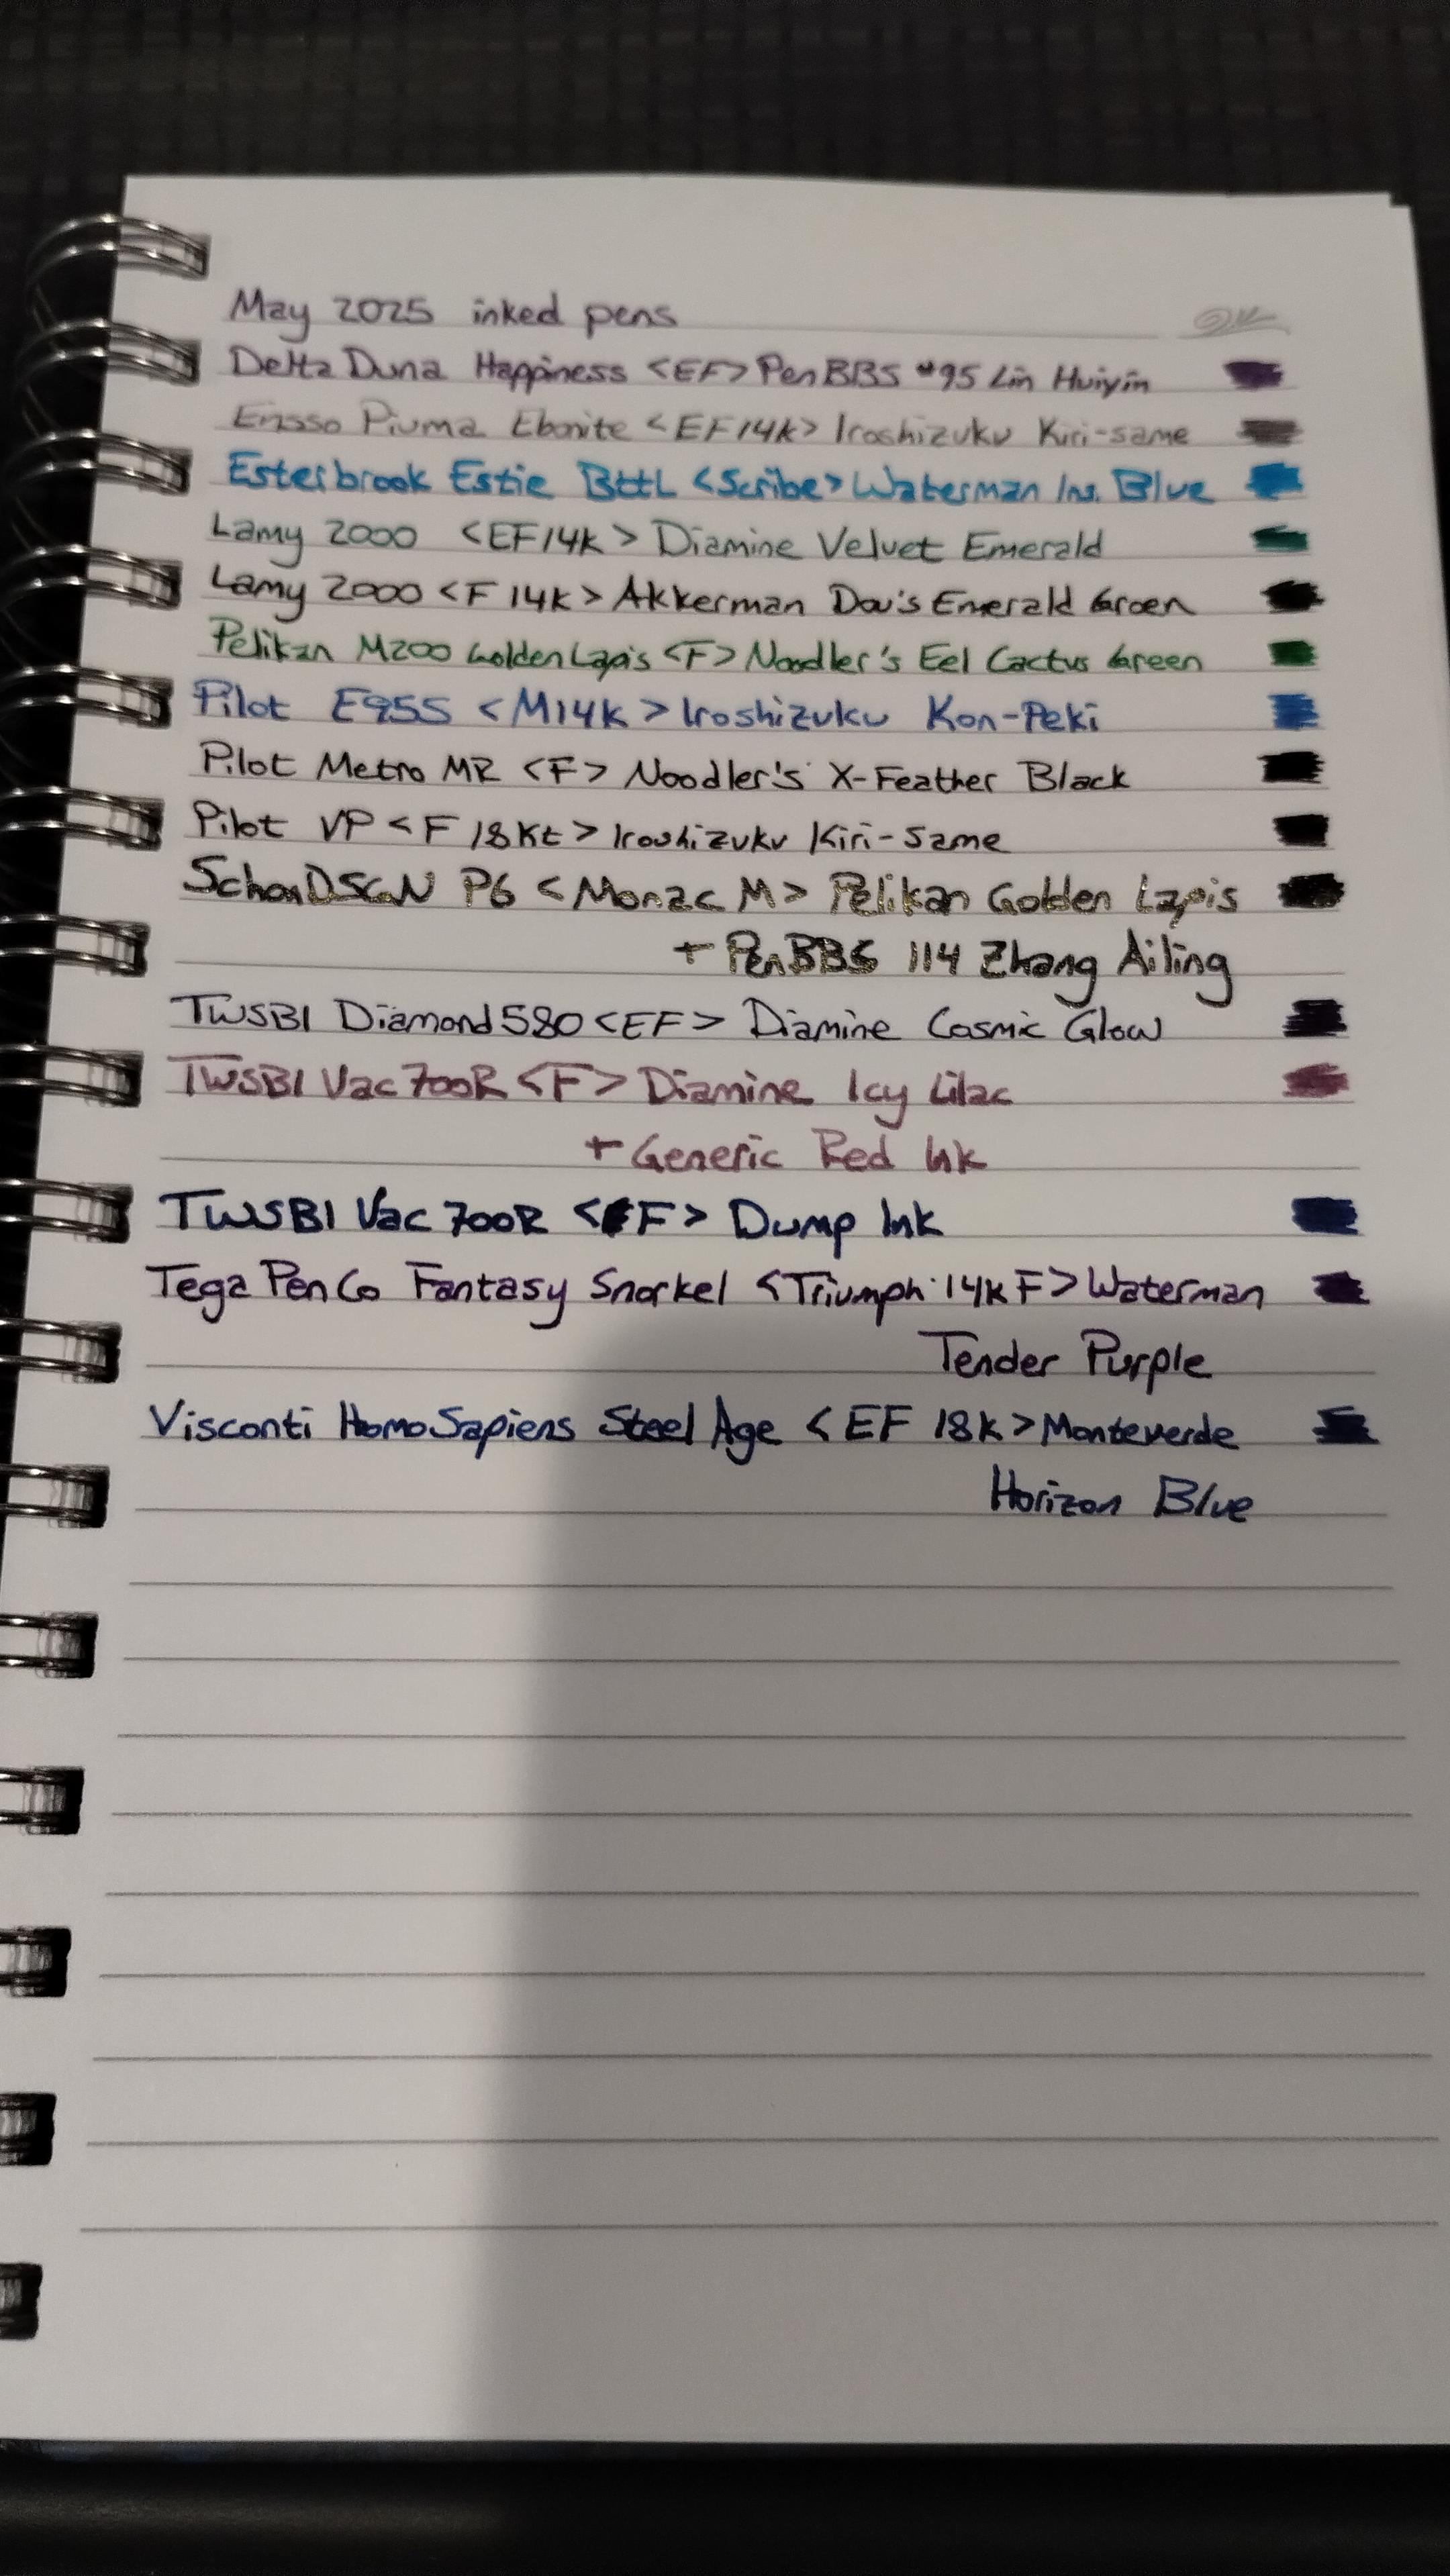 May 2025 inked pens
Delta Duna Happiness <EF> PenBBS #95 Lin Huiyin
Ensso Piuma Ebonite <EF 14k> Iroshizuku Kiri-same
Esterbrook Estie BttL <Scribe> Waterman Ins. Blue
Lamy 2000 <EF 14k> Diamine Velvet Emerald
Lamy 2000 <F 14k> Akkerman Dou's Emerald Groen
Pelikan M200 Golden Lapis <F> Noodler's Eel Cactus Green
Pilot E95S <M 14k> Iroshizuku Kon-Peki
Pilot Metro MR <F> Noodler's X-Feather Black
Pilot VP <F 18kt> Iroshizuku Kiri-Same
SchonDSGN P6 <Monoc M> Pelikan Golden Lapis
+ PenBBS 114 Zhang Ailing
TWSBI Diamond 580 <EF> Diamine Cosmic Glow
TWSBI Vac 700R <F> Diamine Icy Lilac
+ Generic Red Ink
TWSBI Vac 700R <F> Dump Ink
Tega Pen Co Fantasy Snorkel <Triumph 14k F> Waterman
Tender Purple
Visconti HomoSapiens Steel Age <EF 18k> Monteverde
Horizon Blue